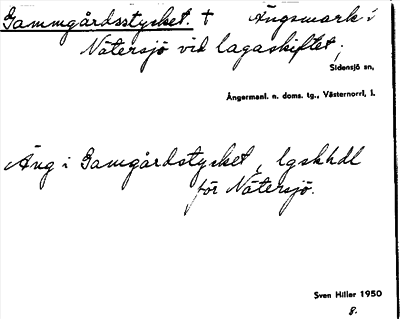 Gammgårdsstycket. † Ängsmark i
Nätersjö vid lagaskiftet;
Sidensjö sn,
Ångermanl. n. doms. tg., Västernorrl. l.
Äng i Gamgårdstycket, lgskhdl
för Nätersjö.
Sven Hiller 1950
8.